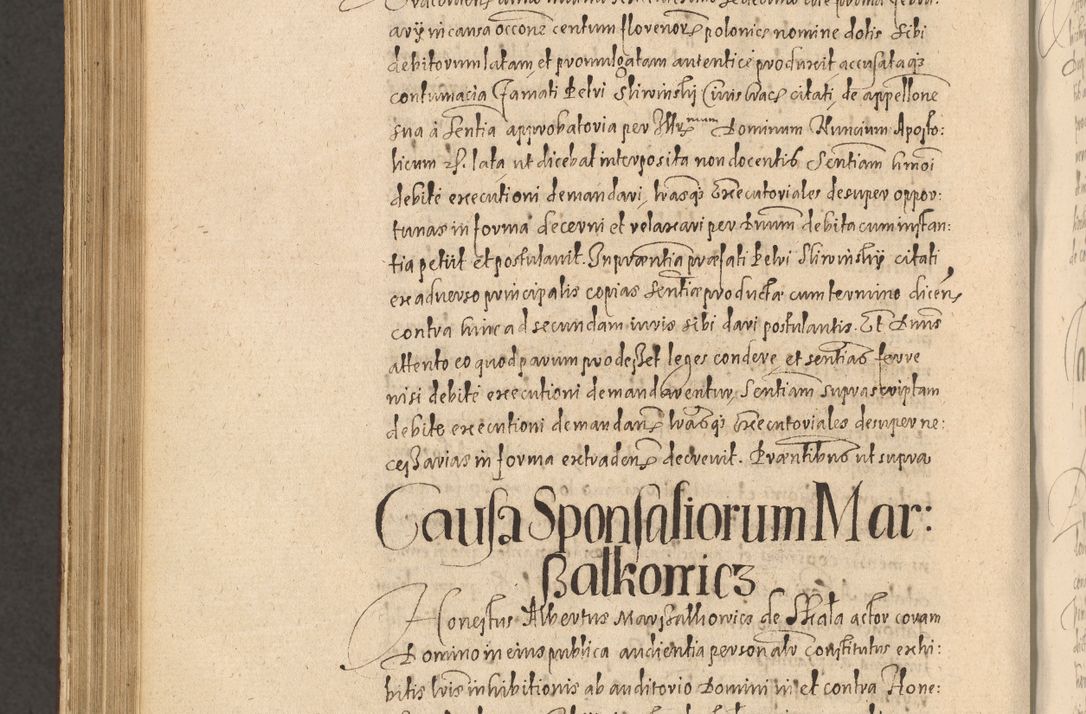 arÿ in causa occone centum florenor polonics nomine dotis sibi
debitorum latam et promulgatam autentice produxit accusataq3
contumacia famati Petri Sliwinskÿ Civis Crac citati, de appellone
sua à sentia approbatoria per Illrmum Dominum Nuncium Aposto:
licum lata ut dicebat interposita non docentis Sentiam hmoi
debite executioni demandari, lrasq3 Executoriales desuper oppor:
tunas in forma decerni et relaxari per Dnum debita cum instan:
tia petiit et postulavit. In prœntia prœfati Petri Sliwinskÿ citati
ex adverso principalis copias sentiœ productœ cum termino dicen
contra hinc ad secundam iuris sibi dari postulantis. Et Dnus
attento eo quod parum prodesset leges condere, et sentias ferre
nisi debite executioni demandarentur, Sentiam suprascriptam
debite executioni demandan lrasq3 Executoriales desuper ne:
cessarias in forma extraden decrevit. Prœntibus ut supra
Causa Sponsaliorum Mar:
szalkowicz
Honestus Albertus Marszalkowics de Skala actor coram
Domino in eius publica audientia personalr constitutus exhi:
bitis lris inhibitionis ab auditorio Domini in et contra Hone: